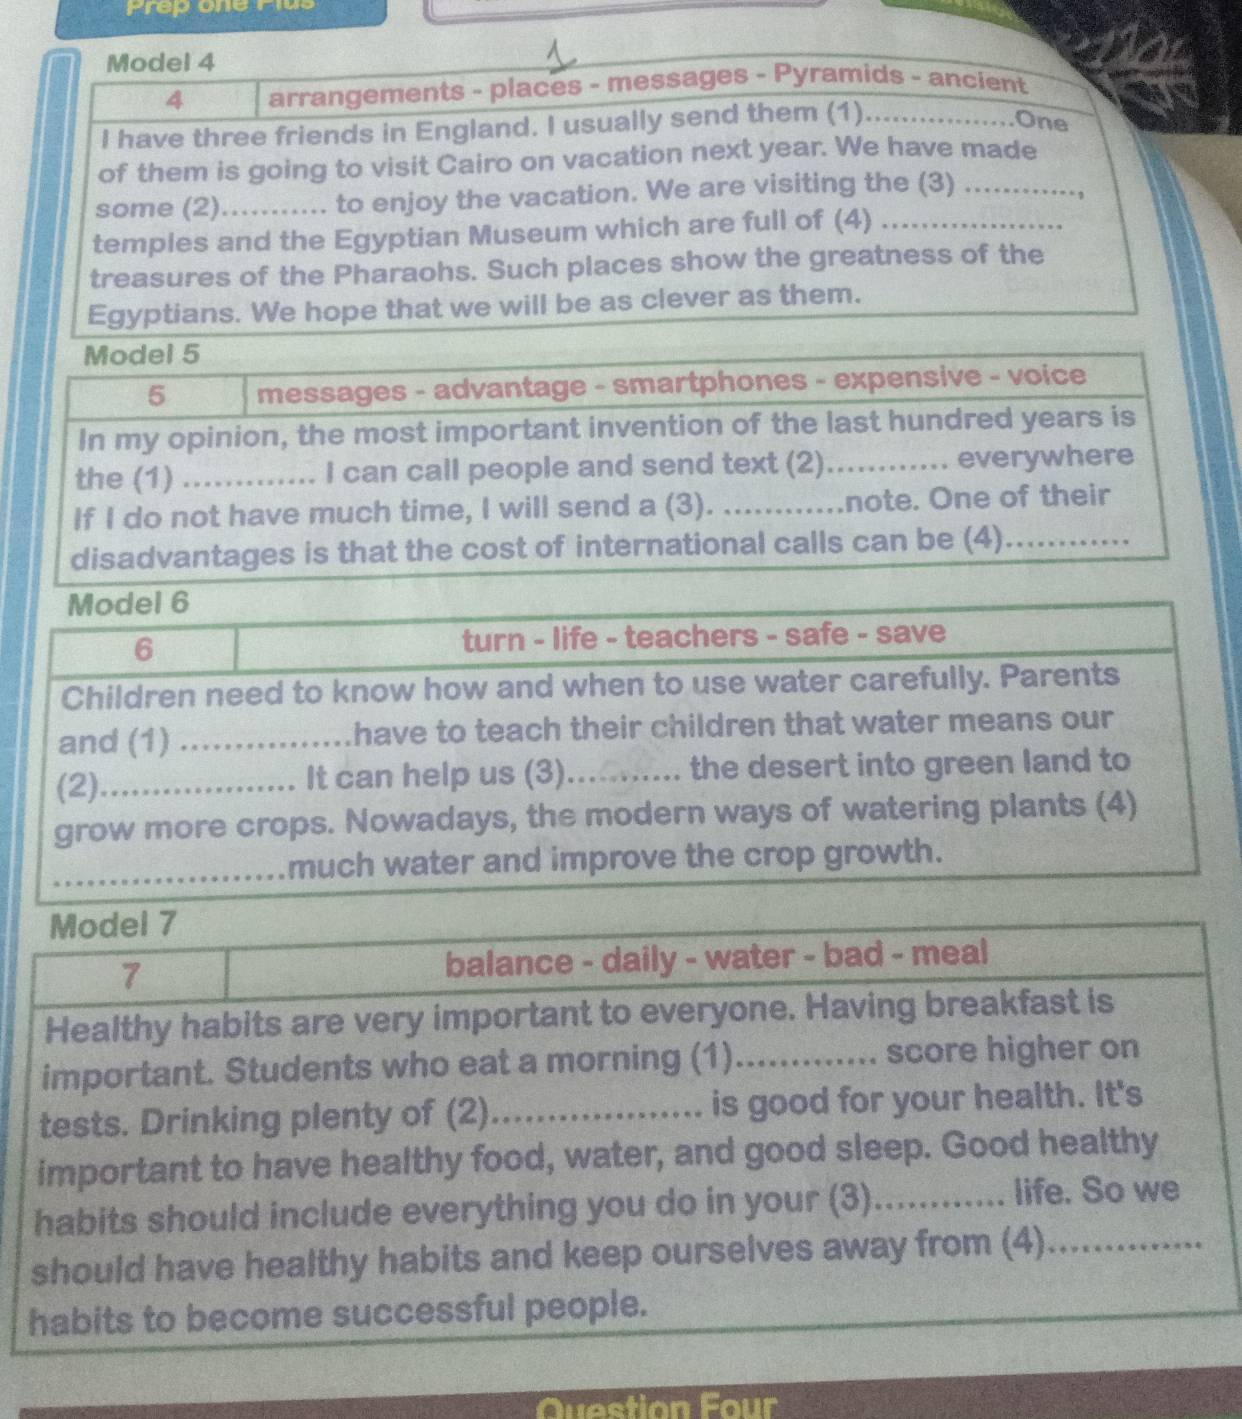 Prep one Plus
Model 4
1
4 arrangements - places - messages - Pyramids - ancient
I have three friends in England. I usually send them (1)..................One
of them is going to visit Cairo on vacation next year. We have made
some (2)............ to enjoy the vacation. We are visiting the (3) ............,
temples and the Egyptian Museum which are full of (4) ....................
treasures of the Pharaohs. Such places show the greatness of the
Egyptians. We hope that we will be as clever as them.
Model 5
5 messages - advantage - smartphones - expensive - voice
In my opinion, the most important invention of the last hundred years is
the (1) .............. I can call people and send text (2)............. everywhere
If I do not have much time, I will send a (3). .............note. One of their
disadvantages is that the cost of international calls can be (4).............
Model 6
6 turn - life - teachers - safe - save
Children need to know how and when to use water carefully. Parents
and (1) .................have to teach their children that water means our
(2)..................... It can help us (3)............ the desert into green land to
grow more crops. Nowadays, the modern ways of watering plants (4)
......................much water and improve the crop growth.
Model 7
7 balance - daily - water - bad - meal
Healthy habits are very important to everyone. Having breakfast is
important. Students who eat a morning (1).............. score higher on
tests. Drinking plenty of (2).................... is good for your health. It's
important to have healthy food, water, and good sleep. Good healthy
habits should include everything you do in your (3)............. life. So we
should have healthy habits and keep ourselves away from (4)...............
habits to become successful people.
Question Four